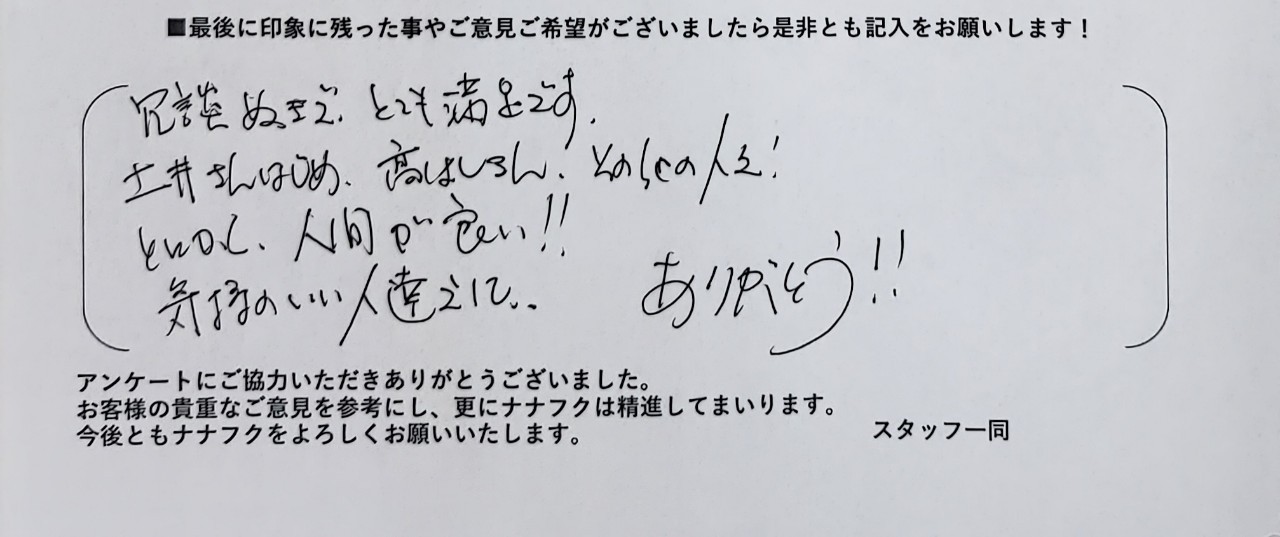 ■最後に印象に残った事やご意見ご希望がございましたら是非とも記入をお願いします！
冗談ぬきで、とても満足です。
土井さんはじめ、高はしさん！その他の人も！
とにかく、人間が良い!!
気持のいい人達でした。
ありがとう!!
アンケートにご協力いただきありがとうございました。
お客様の貴重なご意見を参考にし、更にナナフクは精進してまいります。
今後ともナナフクをよろしくお願いいたします。
スタッフ一同